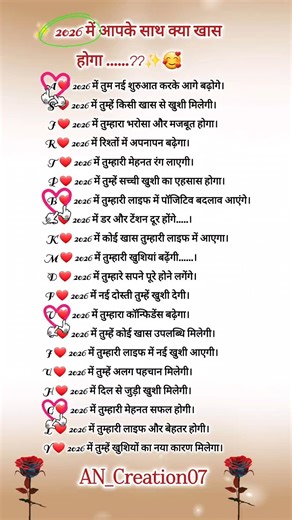 2026 में आपके साथ क्या खास
होगा ......??✨🥰
A❤️ 2026 में तुम नई शुरुआत करके आगे बढ़ोगे।
S❤️ 2026 में तुम्हें किसी खास से खुशी मिलेगी।
J❤️ 2026 में तुम्हारा भरोसा और मजबूत होगा।
R❤️ 2026 में रिश्तों में अपनापन बढ़ेगा।
❤️ 2026 में तुम्हारी मेहनत रंग लाएगी।
❤️ 2026 में तुम्हें सच्ची खुशी का एहसास होगा।
B❤️ 2026 में तुम्हारी लाइफ में पॉजिटिव बदलाव आएंगे।
❤️ 2026 में डर और टेंशन दूर होंगे.....।
K❤️ 2026 में कोई खास तुम्हारी लाइफ में आएगा।
M❤️ 2026 में तुम्हारी खुशियां बढ़ेंगी......।
D❤️ 2026 में तुम्हारे सपने पूरे होने लगेंगे।
P❤️ 2026 में नई दोस्ती तुम्हें खुशी देगी।
❤️ 2026 में तुम्हारा कॉन्फिडेंस बढ़ेगा।
❤️ 2026 में तुम्हें कोई खास उपलब्धि मिलेगी।
❤️ 2026 में तुम्हारी लाइफ में नई खुशी आएगी।
❤️ 2026 में तुम्हें अलग पहचान मिलेगी।
H❤️ 2026 में दिल से जुड़ी खुशी मिलेगी।
❤️ 2026 में तुम्हारी मेहनत सफल होगी।
❤️ 2026 में तुम्हारी लाइफ और बेहतर होगी।
Y❤️ 2026 में तुम्हें खुशियों का नया कारण मिलेगा।
AN_Creation07